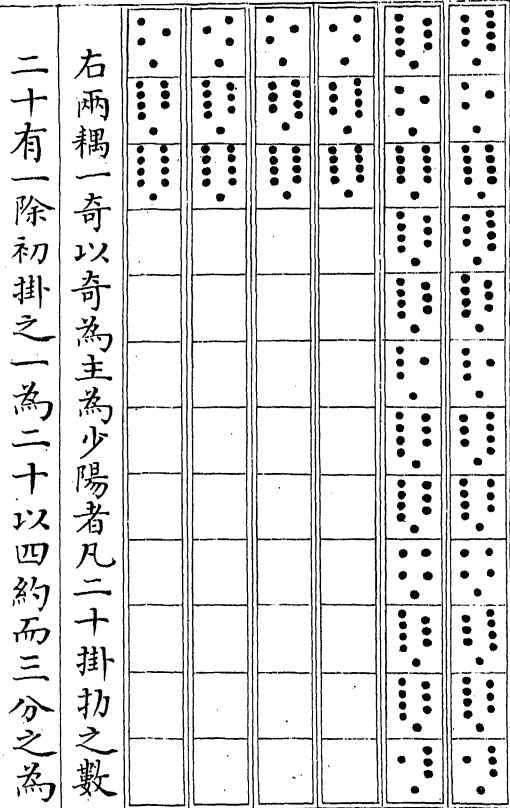 右兩耦一奇以奇為主為少陽者凡二十掛扐之數
二十有一除初掛之一為二十以四約而三分之為